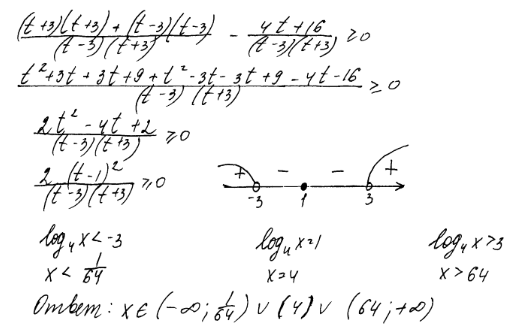 ((t+3)(t+3) + (t-3)(t-3))/((t-3)(t+3)) - (4t+16)/((t-3)(t+3)) ≥ 0
(t²+3t+3t+9+t²-3t-3t+9-4t-16)/((t-3)(t+3)) ≥ 0
(2t²-4t+2)/((t-3)(t+3)) ≥ 0
(2(t-1)²)/((t-3)(t+3)) ≥ 0
+ - - +
-3 1 3
log₄x<-3 log₄x=1 log₄x>3
x < 1/64 x=4 x>64
Ответ: x∈(-∞; 1/64) ∪ (4) ∪ (64; +∞)